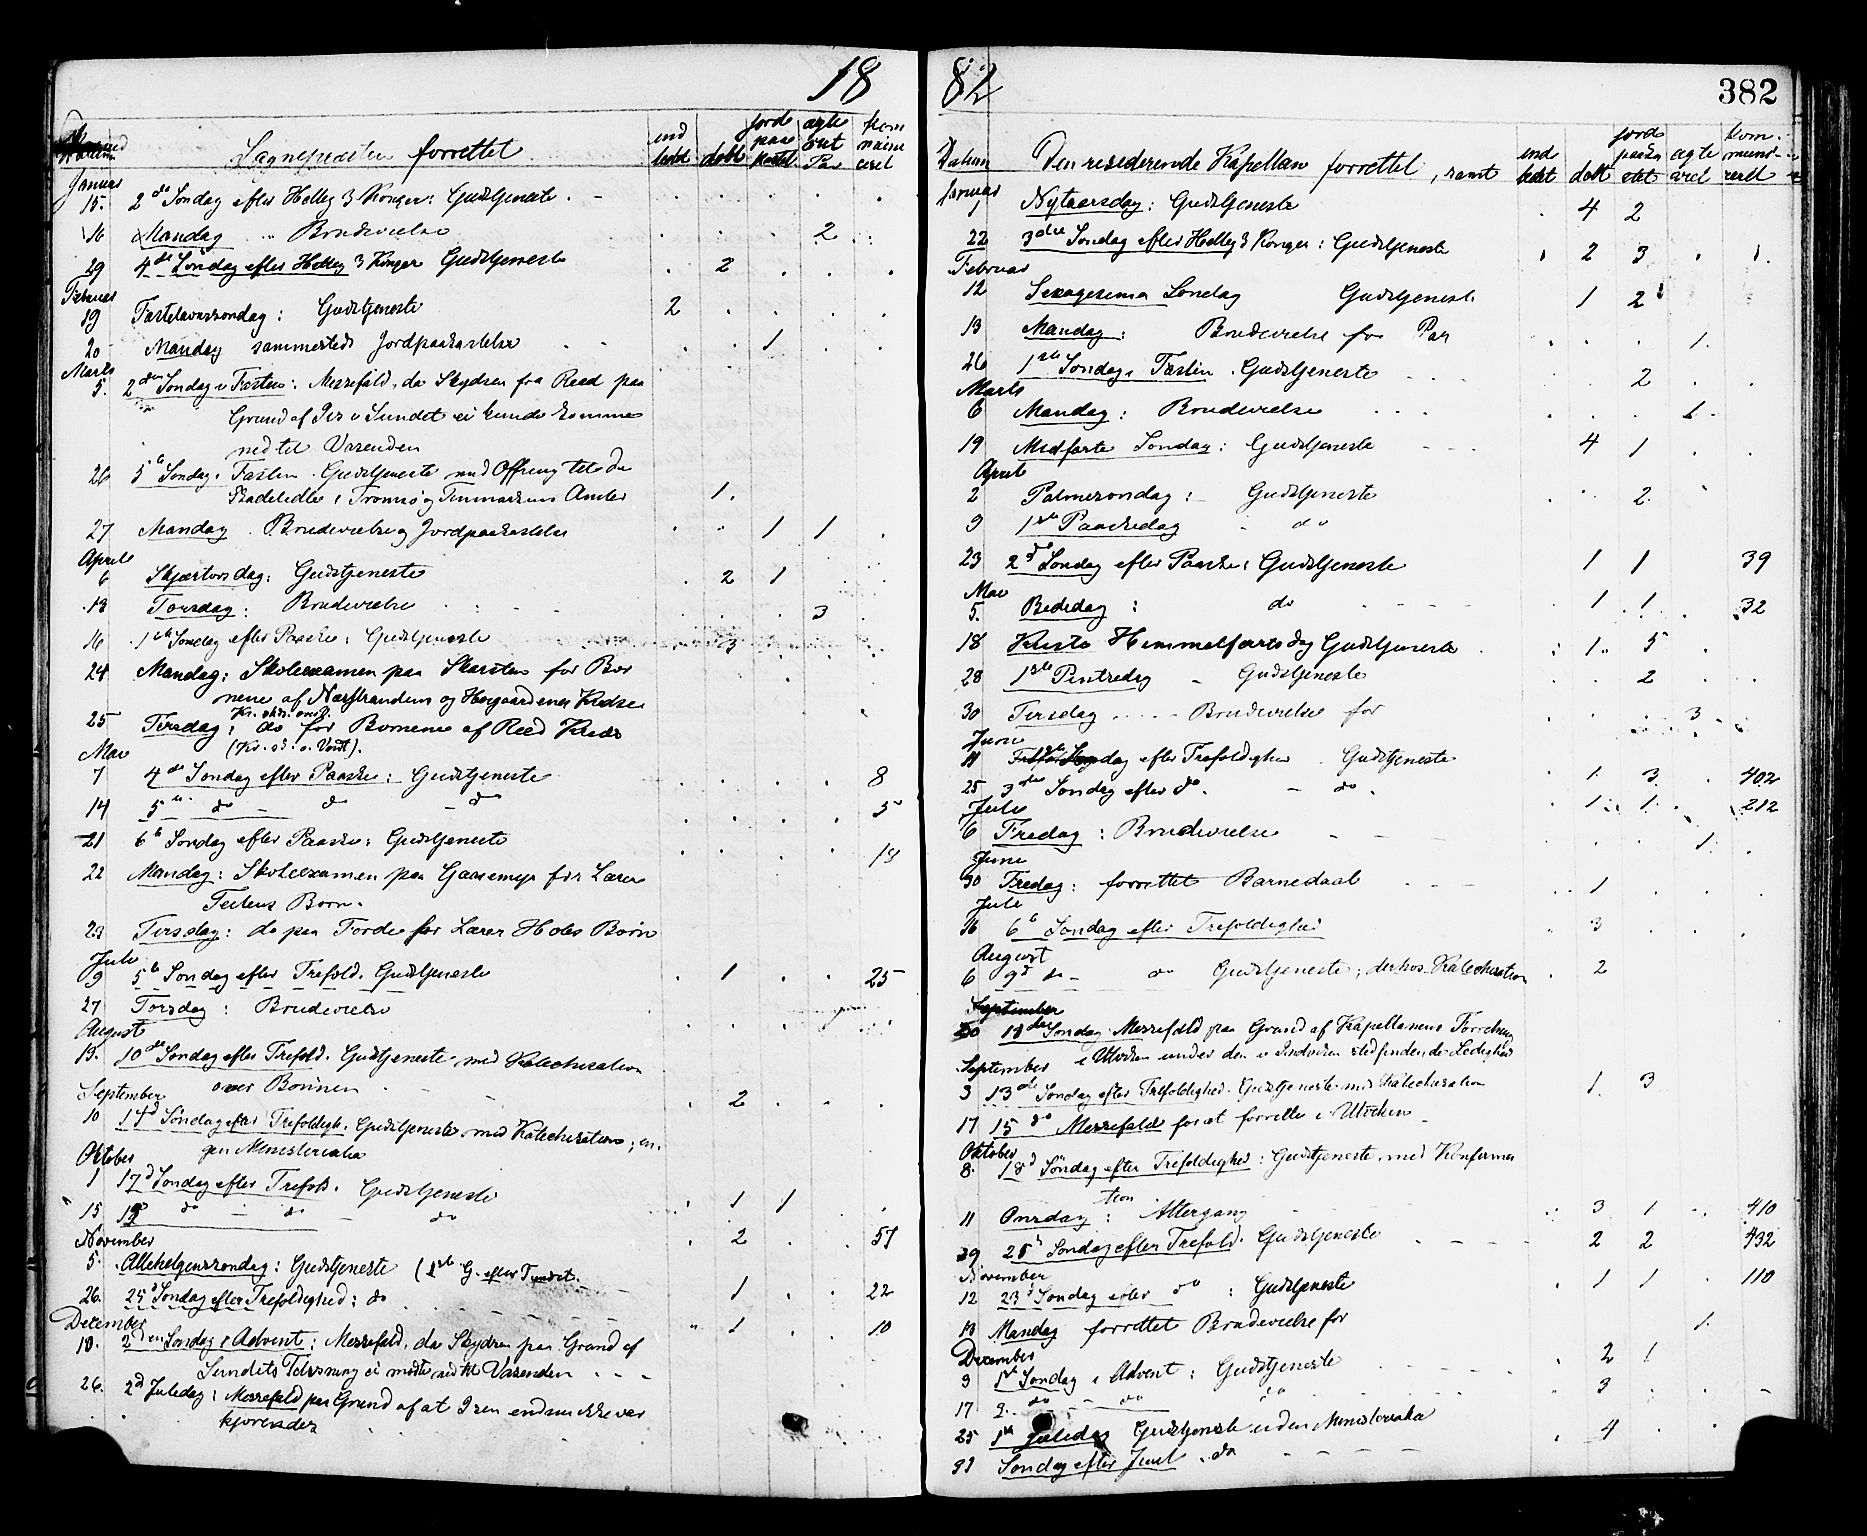 18
Sognepresten forrettet
ind ledet døbt jord paa kastet ægte viet Par kom munic eret
Januar
15. 2den Søndag efter Hellig 3 Konger: Gudstjeneste
16 Mandag " Brudevielse 2
29 4de Søndag efter Hellig 3 Konger Gudstjeneste 2
Februar
19 Fastelavnssøndag: Gudstjeneste 2
20 Mandag sammesteds Jordpaakastelse 1
Marts
5. 2den Søndag i Fasten: Messefald, da Skydsen fra Reed paa
Grund af Iis i Sundet ei kunde komme
ned til Vasenden
26 5te Søndag i Fasten. Gudstjeneste med Offring til de
Skadelidte i Tromsø og Finmarkens Amter 1.
27 Mandag. Brudevielse og Jordpaakastelse 1 1
April
6 Skjærtorsdag: Gudstjeneste 2 1
13 Torsdag: Brudevielse 3
16 1ste Søndag efter Paaske: Gudstjeneste 3
24 Mandag: Skoleexamen paa Skarsten for Bør
nene af Nærstrandens og Høgaardenes Kredse
25 Tirsdag: do for Børnene af Reed Kreds
Mai
7 4de Søndag efter Paaske: Gudstjeneste 8
14 5te do do do 5
21 6te Søndag efter Paaske: Gudstjeneste 18
22 Mandag: Skoleexamen paa Gaasemyr for Lærer
Teitens Børn.
23 Tirsdag: do paa Førde for Lærer Holes Børn
Juli
9 5te Søndag efter Trefold. Gudstjeneste 1 25
27 Torsdag: Brudevielse
August
13. 10de Søndag efter Trefold. Gudstjeneste med Katechisation
over Børnen 2
September
10 14d Søndag efter Trefoldigh. Gudstjeneste med Katechisation; in
gen Ministerialia
Oktober
1 17d Søndag efter Trefold. Gudstjeneste 1 1
15 19 do do do 2 57
November
5. Allehelgenssøndag: Gudstjeneste 1 22
26. 25d Søndag efter Trefoldighed: do 1 10
December
10. 2den Søndag i Advent: Messefald, da Skydsen paa Grund af
Sundets Tilisning ei mødte ned til Vasenden
26. 2d Juledag: Messefald paa Grund af at Isen endnu ikke var
kjørendes
82
382
Datum Den residerende Kapellan forrettet, samt ind ledet døbt jord paaka stet ægte viet kom muni cert
Januar
1 Nytaarsdag: Gudstjeneste 4 2
22 3die Søndag efter Hellig 3 Konger: Gudstjeneste 2 3
Februar
12 Sexagesima Søndag Gudstjeneste 1 2
13 Mandag: Brudevielse for Par 1.
26 1ste Søndag i Fasten. Gudstjeneste 2
Marts
6 Mandag: Brudevielse 1.
19 Midfaste Søndag: Gudstjeneste 4 1
April
2 Palmesøndag: Gudstjeneste 2
9 1ste Paaskedag do
23 2d Søndag efter Paaske: Gudstjeneste 1 1 39
Mai
5. Bededag: do 1 1. 32
18 Kristi Himmelfartsdag Gudstjeneste 1 5
28 1ste Pintsedag Gudstjeneste 2
30 Tirsdag Brudevielse for 3
Juni
11 Søndag efter Trefoldighed. Gudstjeneste 1. 3 402
25 3die Søndag efter do. do. 1. 1 212
Juli
6 Fredag: Brudevielse 1.
Juni
30 Fredag: forrettet Barnedaab 1
Juli
16 6te Søndag efter Trefoldighed 3
August
6 9d do do Gudstjeneste; derhos Katechisation 2
September
20 11de Søndag. Messefald paa Grund af Kapellanens Forretning
i Utviken under den i Indviken stedfindende Ledighed
September
3 13de Søndag efter Trefoldighed. Gudstjeneste med Katechisation 1. 3
17 15 do Messefald for at forrette i Utviken
Oktober
8. 18d Søndag efter Trefoldighed: Gudstjeneste med Konfirma
tion
11 Onsdag: Altergang 3 1 410
29 21d Søndag efter Trefold. Gudstjeneste 2 2 432
November
12 23d Søndag efter do: Gudstjeneste 1 1 110
13 Mandag forrettet Brudevielse for 1.
December
3 1ste Søndag i Advent: Gudstjeneste 2 1
17 2. do do do 3
25 1ste Juledag Gudstjeneste uden Ministerialia 4
31 Søndag efter Juul. do